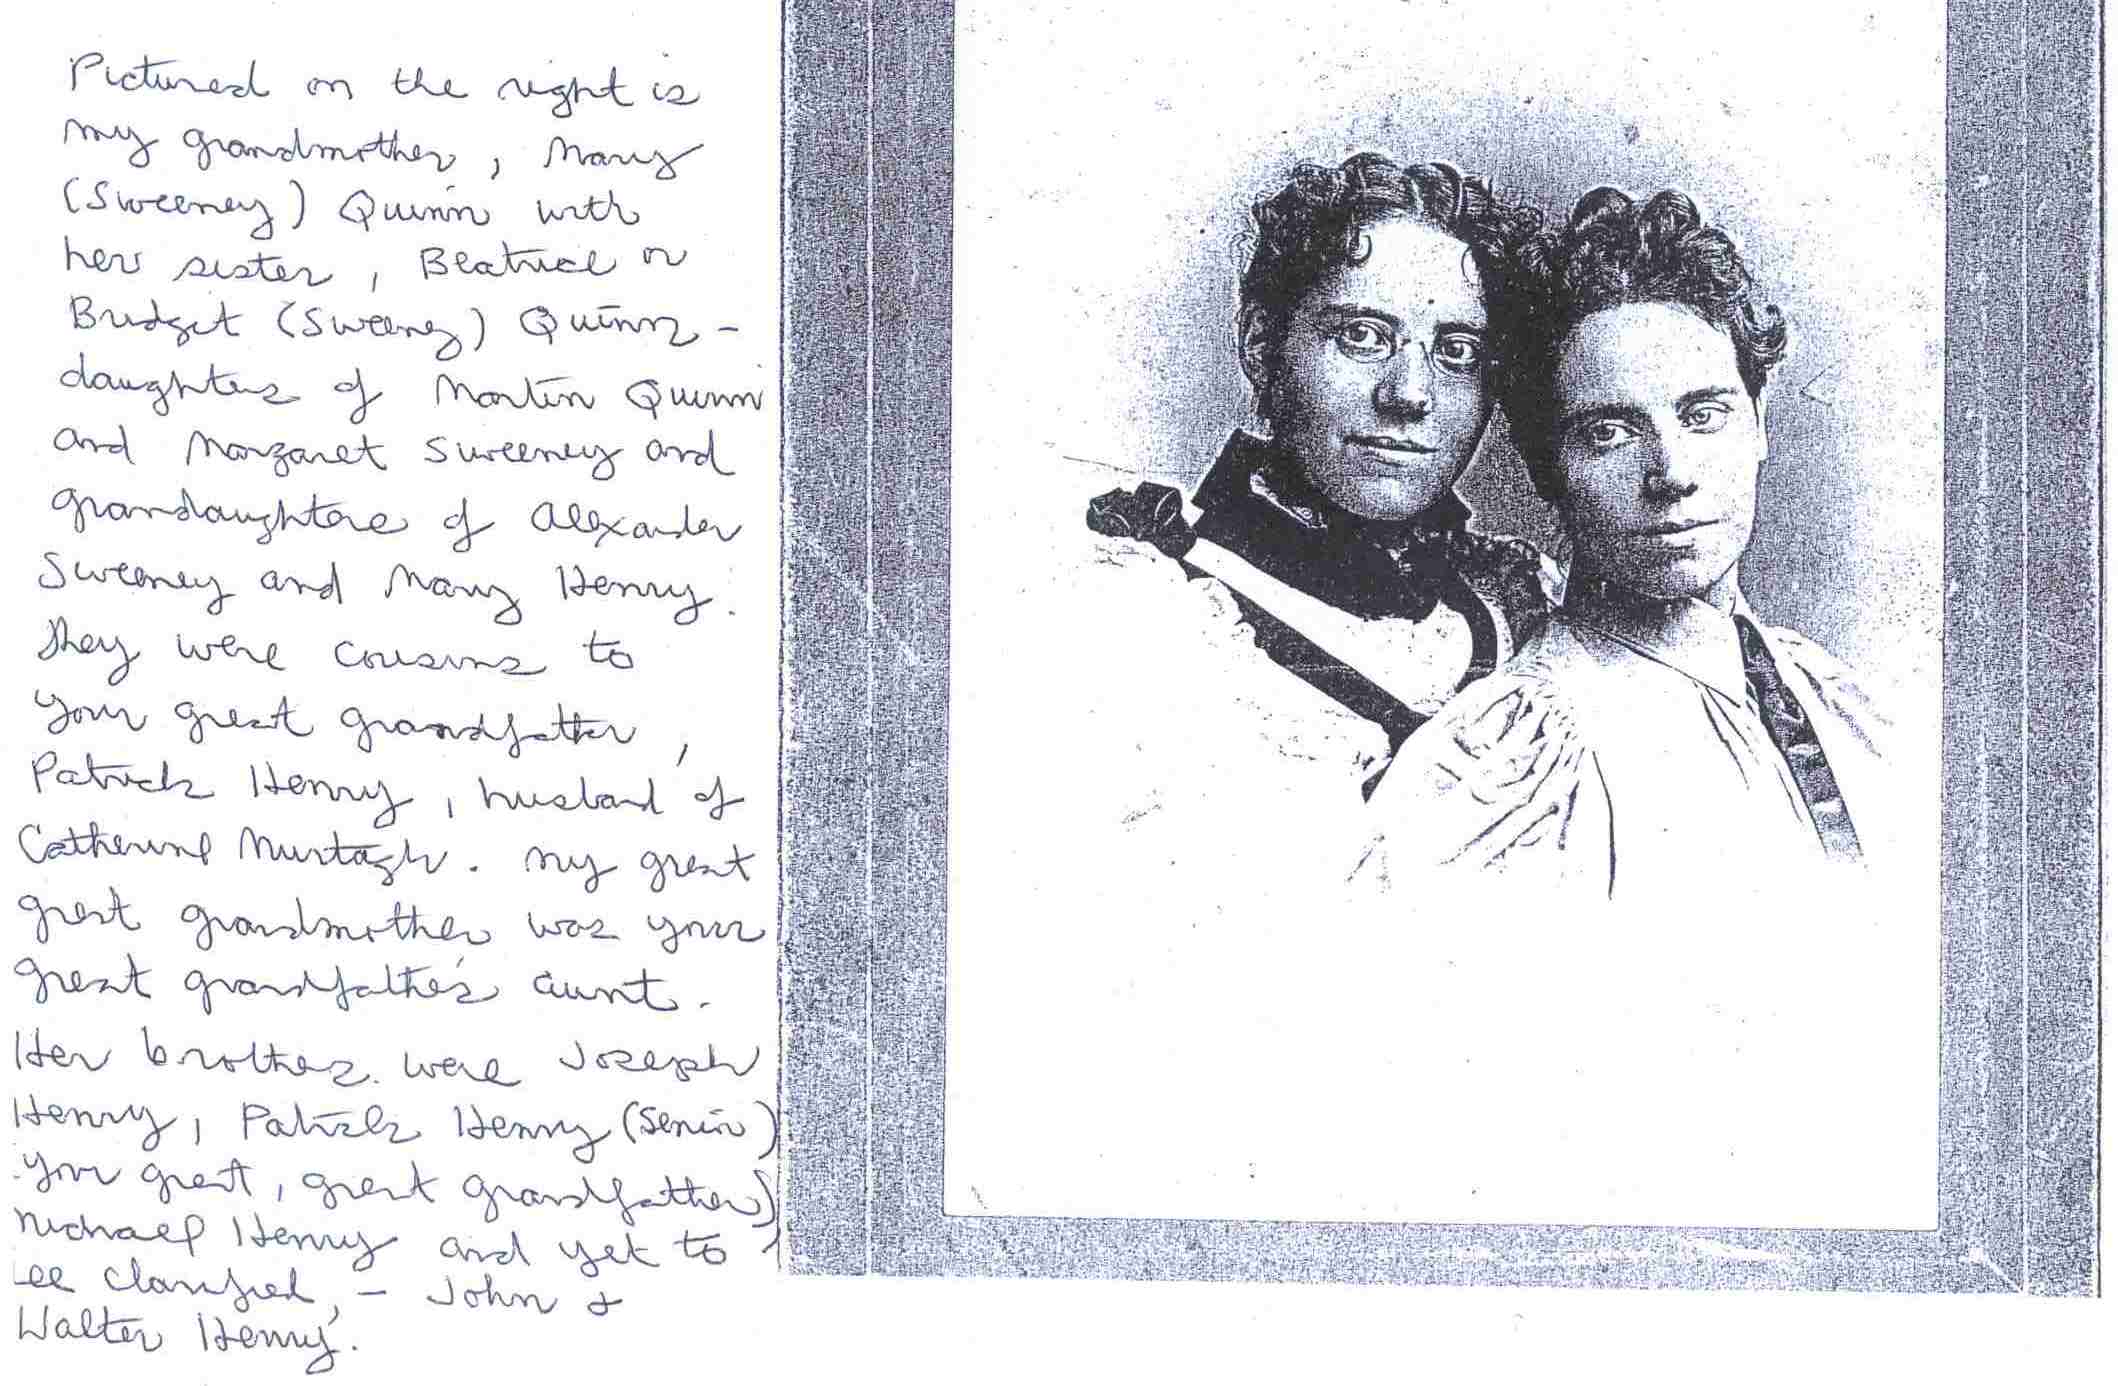 Pictured on the right is
my grandmother, Mary
(Sweeney) Quinn with
her sister, Beatrice or
Bridget (Sweeney) Quinn -
daughters of Martin Quinn
and Margaret Sweeney and
grandaughters of Alexander
Sweeney and Mary Henry.
They were cousins to
your great grandfather,
Patrick Henry, husband of
Catherine Murtagh. My great
great grandmother was your
great grandfather's aunt.
Her brothers were Joseph
Henry, Patrick Henry (Senior)
your great, great grandfather)
Michael Henry and yet to
be clarified, - John &
Walter Henry.